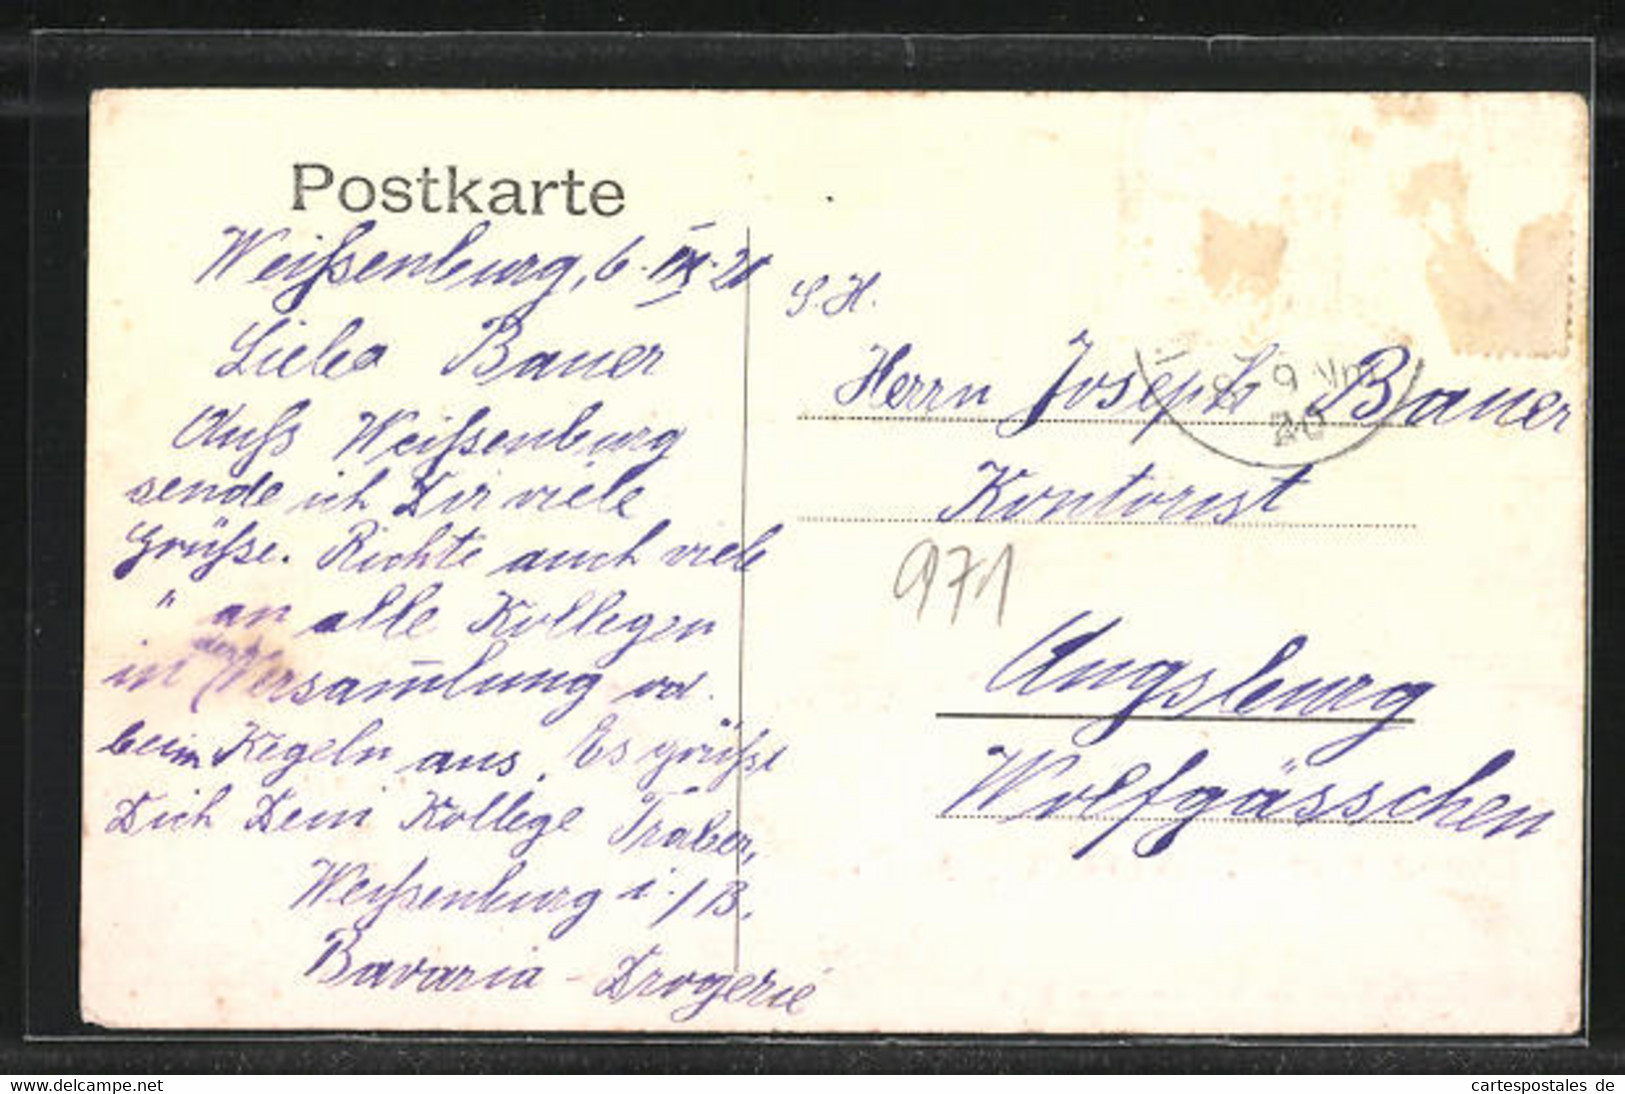 Postkarte
Weißenburg, 6. IX. 20
Lieber Bauer
Aufs Weißenburg
sende ich Dir viele
Grüße. Richte auch viele
" an alle Kollegen
in der Versam̄lung od.
beim Kegeln aus. Es grüßt
Dich Dein Kollege Traber,
Weißenburg i./B.
Bavaria-Drogerie
S. H.
Herrn Joseph Bauer
Kontorist
971
Augsburg
Wolfgässchen
9 Vm
20
delcampe.net
cartespostales de